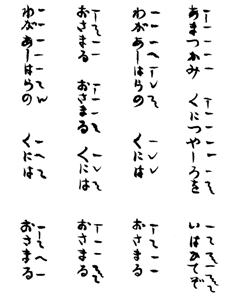 あまつかみ くにつやしろを いはひてぞ
わがあしはらの くには おさまる
おさまる おさまる くには おさまる
わがあしはらの くには おさまる